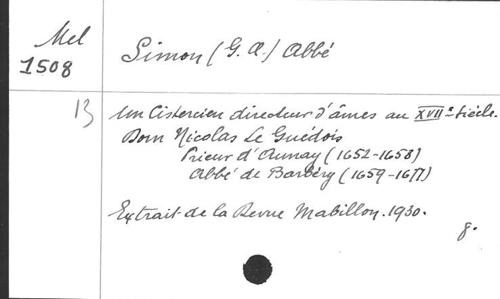 Mel
1508
Simon (G. A.) Abbé
B
Un Cistercien directeur d'âmes au XVIIe siècle.
Dom Nicolas Le Guédois
Prieur d'Aunay (1652-1658)
Abbé de Barbéry (1659-1677)
Extrait de la Revue Mabillon. 1930.
8.